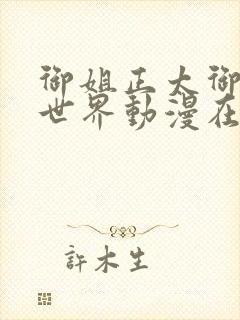 御姐正太御
世界動漫在
許木生